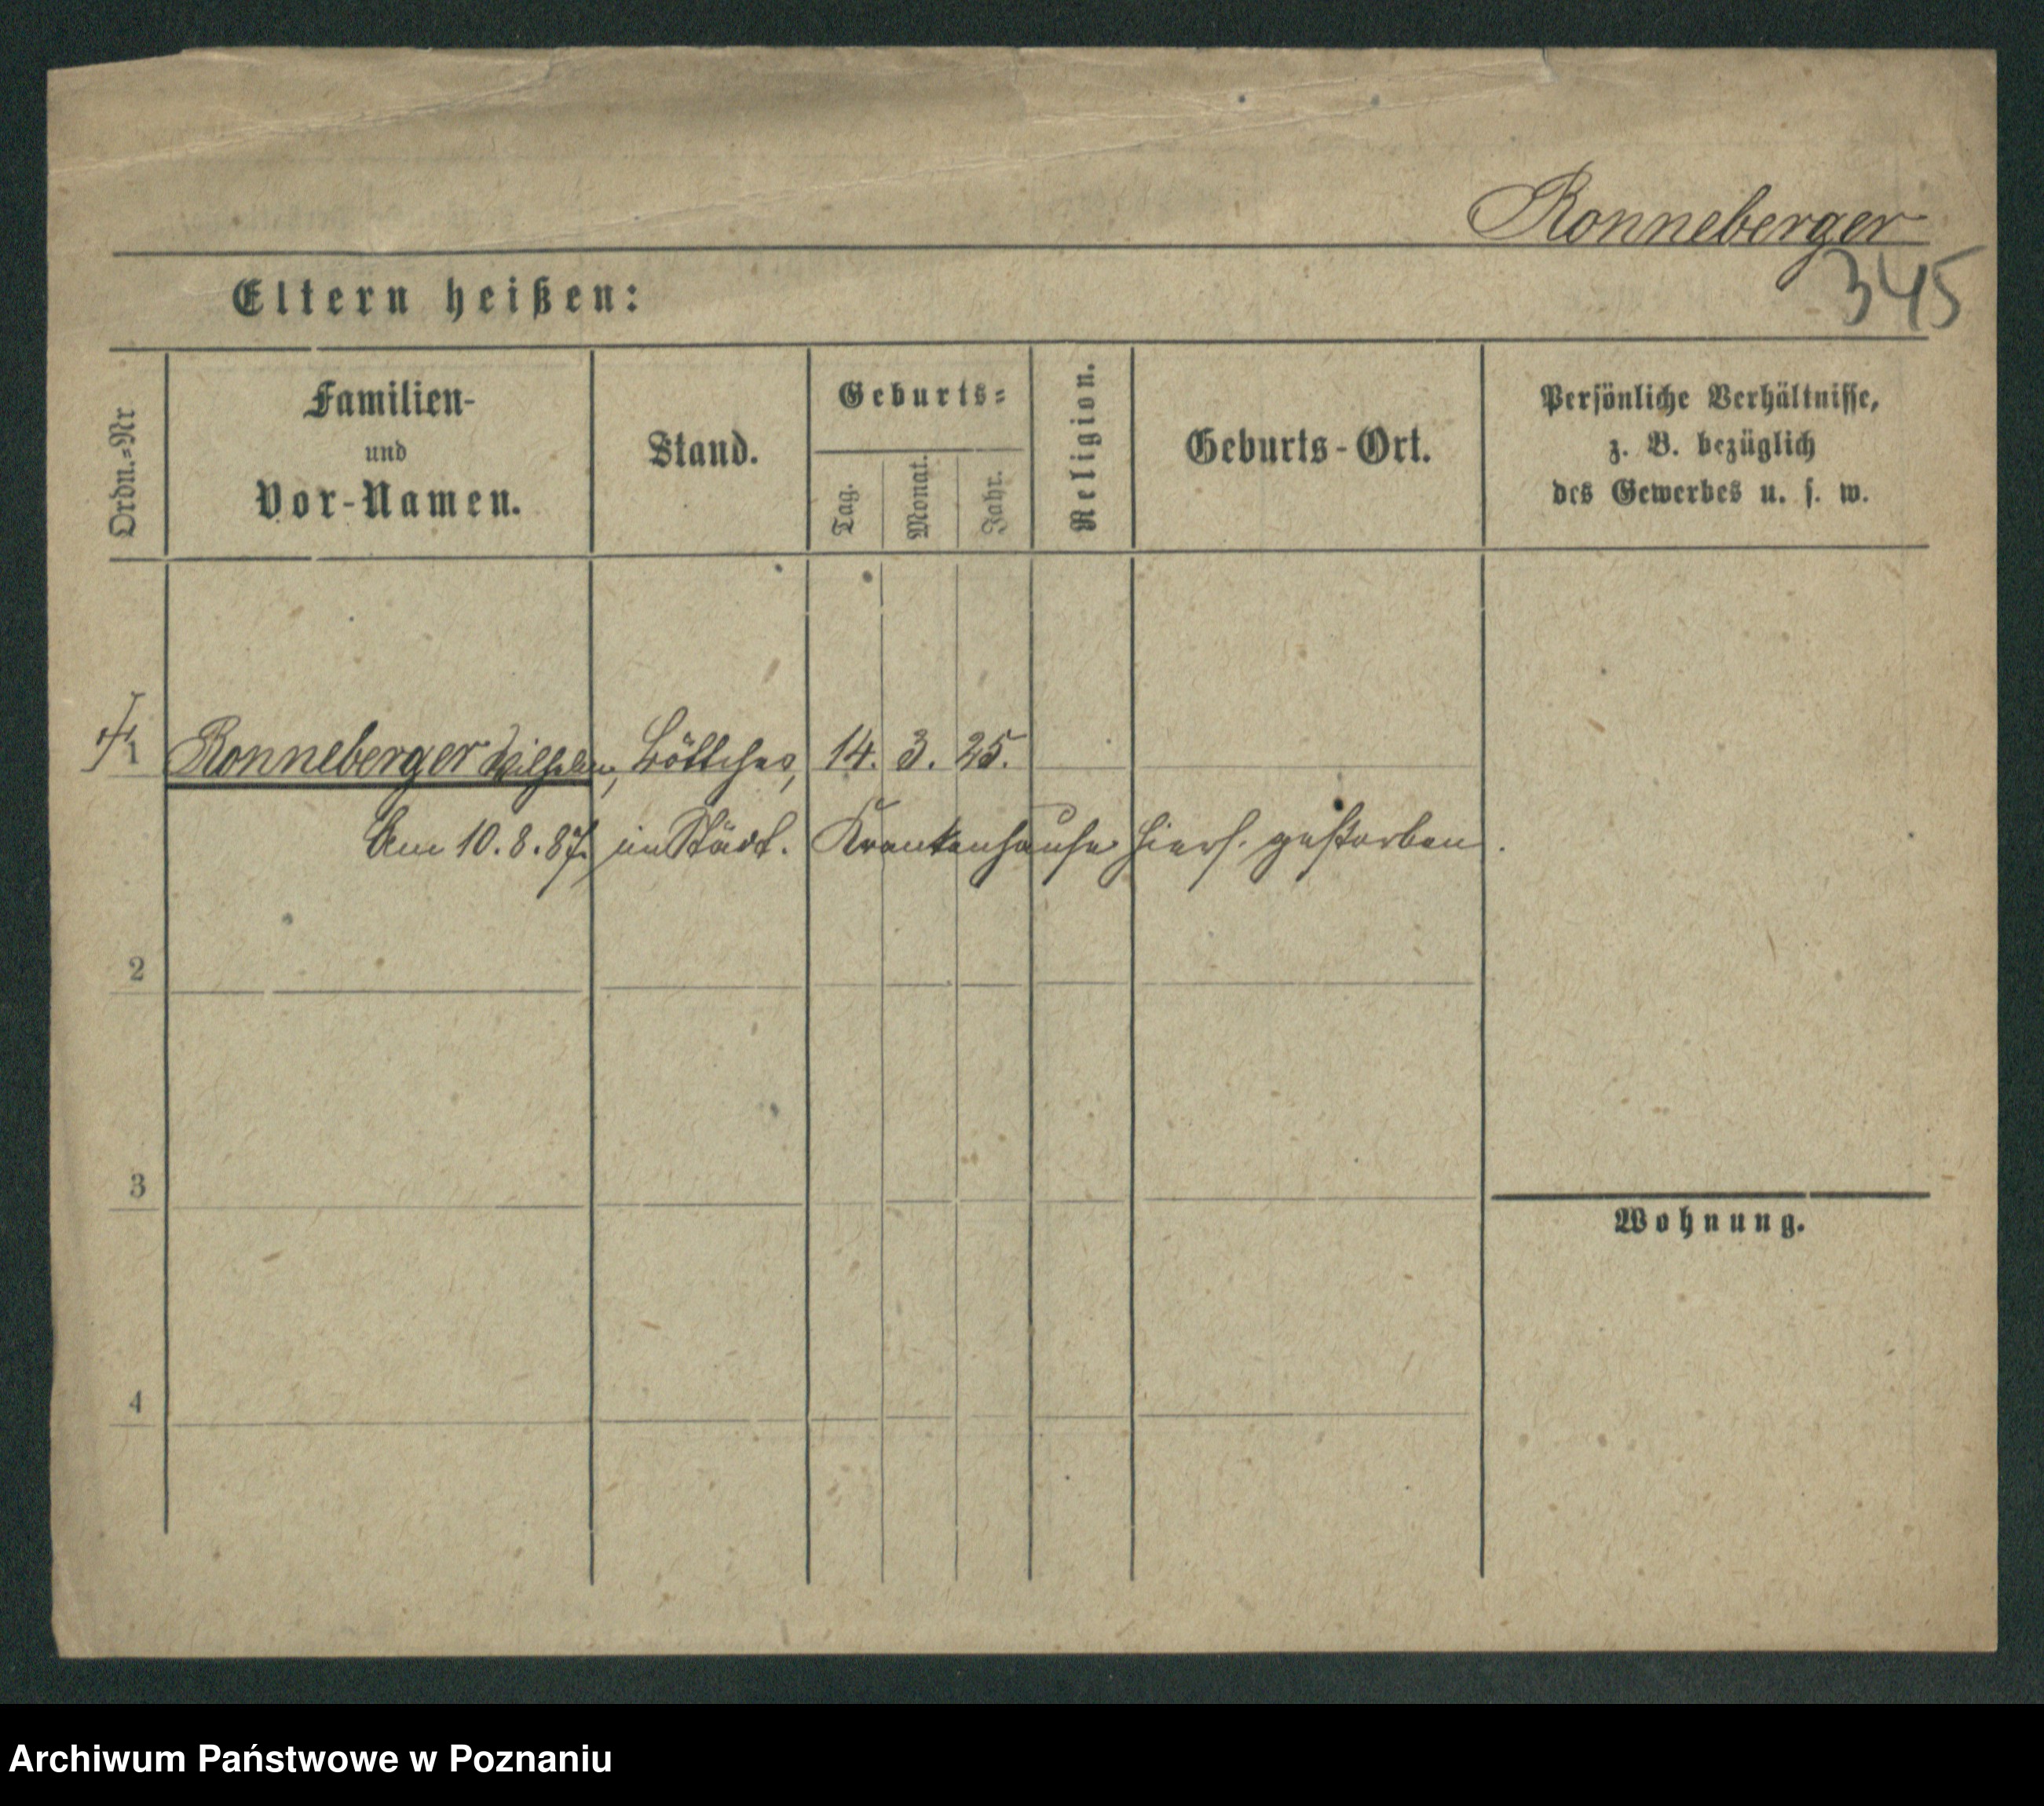 Ronneberger
345
Eltern heißen:
Ordn.=Nr
Familien-
und
Vor-Namen.
Stand.
Geburts=
Tag.
Monat.
Jahr.
Religion.
Geburts-Ort.
Persönliche Verhältnisse,
z. B. bezüglich
des Gewerbes u. s. w.
1 Ronneberger Wilhelm, Böttcher, 14. 3. 25.
Am 10.8.87. im Städt. Krankenhause hiers. gestorben.
2
3
Wohnung.
4
Archiwum Państwowe w Poznaniu